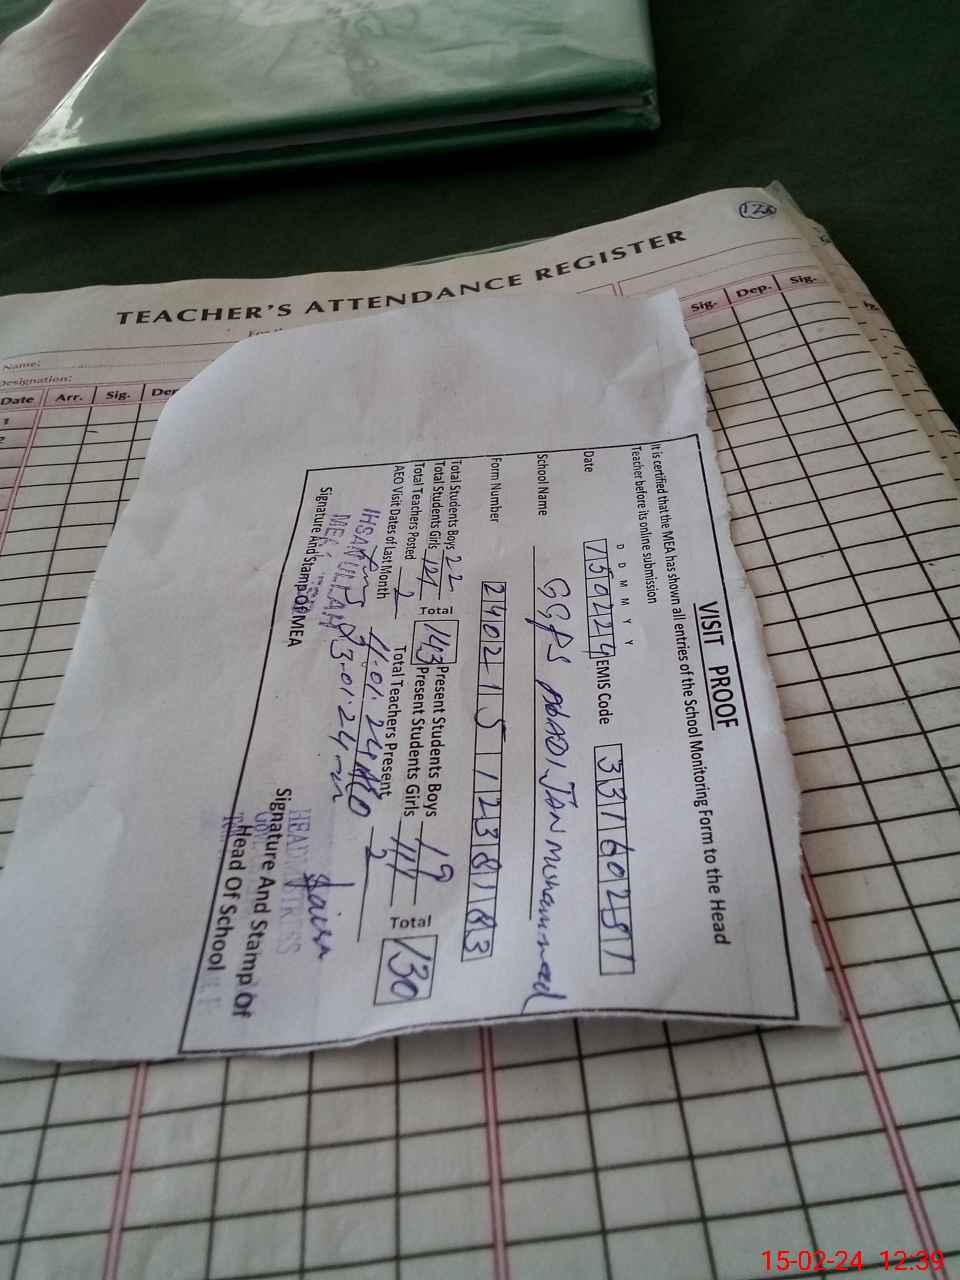 128
TEACHER'S ATTENDANCE REGISTER
Name:
Designation:
Date Arr. Sig. Dep. Sig. Dep. Sig.
1
2
VISIT PROOF
It is certified that the MEA has shown all entries of the School Monitoring Form to the Head
Teacher before its online submission
D D M M Y Y
Date 150224 EMIS Code 33160251
School Name GGPS Abadi Jan Muhammad
Form Number 2402151238183
Total Students Boys 22 Total 143 Present Students Boys 19 Total 130
Total Students Girls 121 Present Students Girls 111
Total Teachers Posted 2 Total Teachers Present 2
AEO Visit Dates of Last Month 11-01-24 AEO
23-01-24
IHSANULLAH
MEA
Signature And Stamp Of MEA
Signature And Stamp Of
Head Of School
15-02-24 12:39